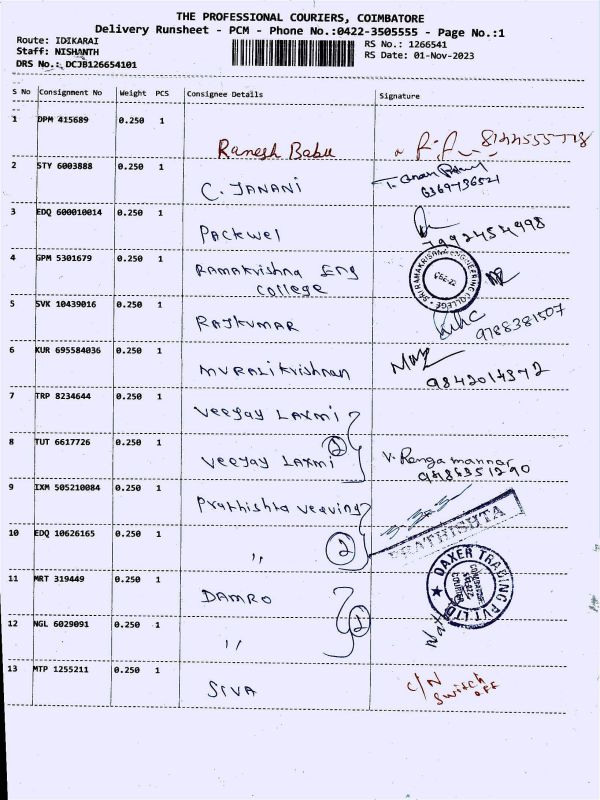 THE PROFESSIONAL COURIERS, COIMBATORE
Delivery Runsheet - PCM - Phone No.:0422-3505555 - Page No.:1
Route: IDIKARAI RS No.: 1266541
Staff: NISHANTH RS Date: 01-Nov-2023
DRS No.: DCJB126654101
S No Consignment No Weight PCS Consignee Details Signature
1 DPM 415689 0.250 1
Ramesh Babu 8144555778
2 STY 6003888 0.250 1
C. JANANI 6369736521
3 EDQ 600010014 0.250 1
Packwel 7992454998
4 GPM 5301679 0.250 1
Ramakrishna Eng SRI RAMAKRISHNA ENGINEERING COLLEGE
College
5 SVK 10439016 0.250 1
RAJKUMAR 9788381507
6 KUR 695584036 0.250 1
Muralikrishnan 9842014372
7 TRP 8234644 0.250 1
Veejay Laxmi
8 TUT 6617726 0.250 1 2
Veejay Laxmi V. Renga mannar
9486351290
9 IXM 505210084 0.250 1
Prathishta Weaving
10 EDQ 10626165 0.250 1 PRATHISHTA
,, 2
11 MRT 319449 0.250 1 DAXER TRADING PVT LTD
DAMRO
12 NGL 6029091 0.250 1 2
,,
13 MTP 1255211 0.250 1
SIVA C/N
Switch
off